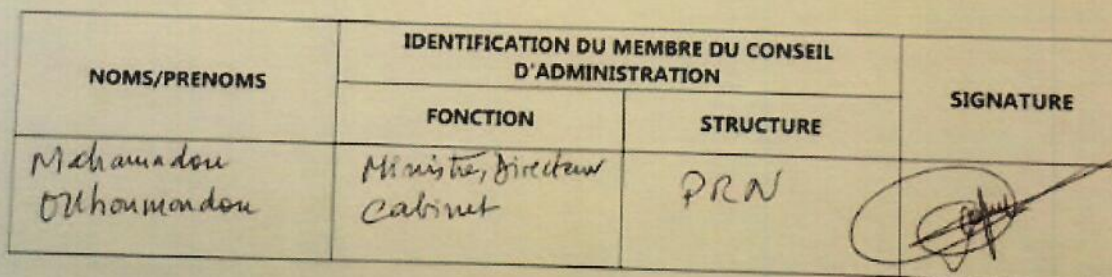 NOMS/PRENOMS
IDENTIFICATION DU MEMBRE DU CONSEIL
D'ADMINISTRATION
SIGNATURE
FONCTION
STRUCTURE
Mahamadou
Ouhoumoudou
Ministre, Directeur
Cabinet
PRN